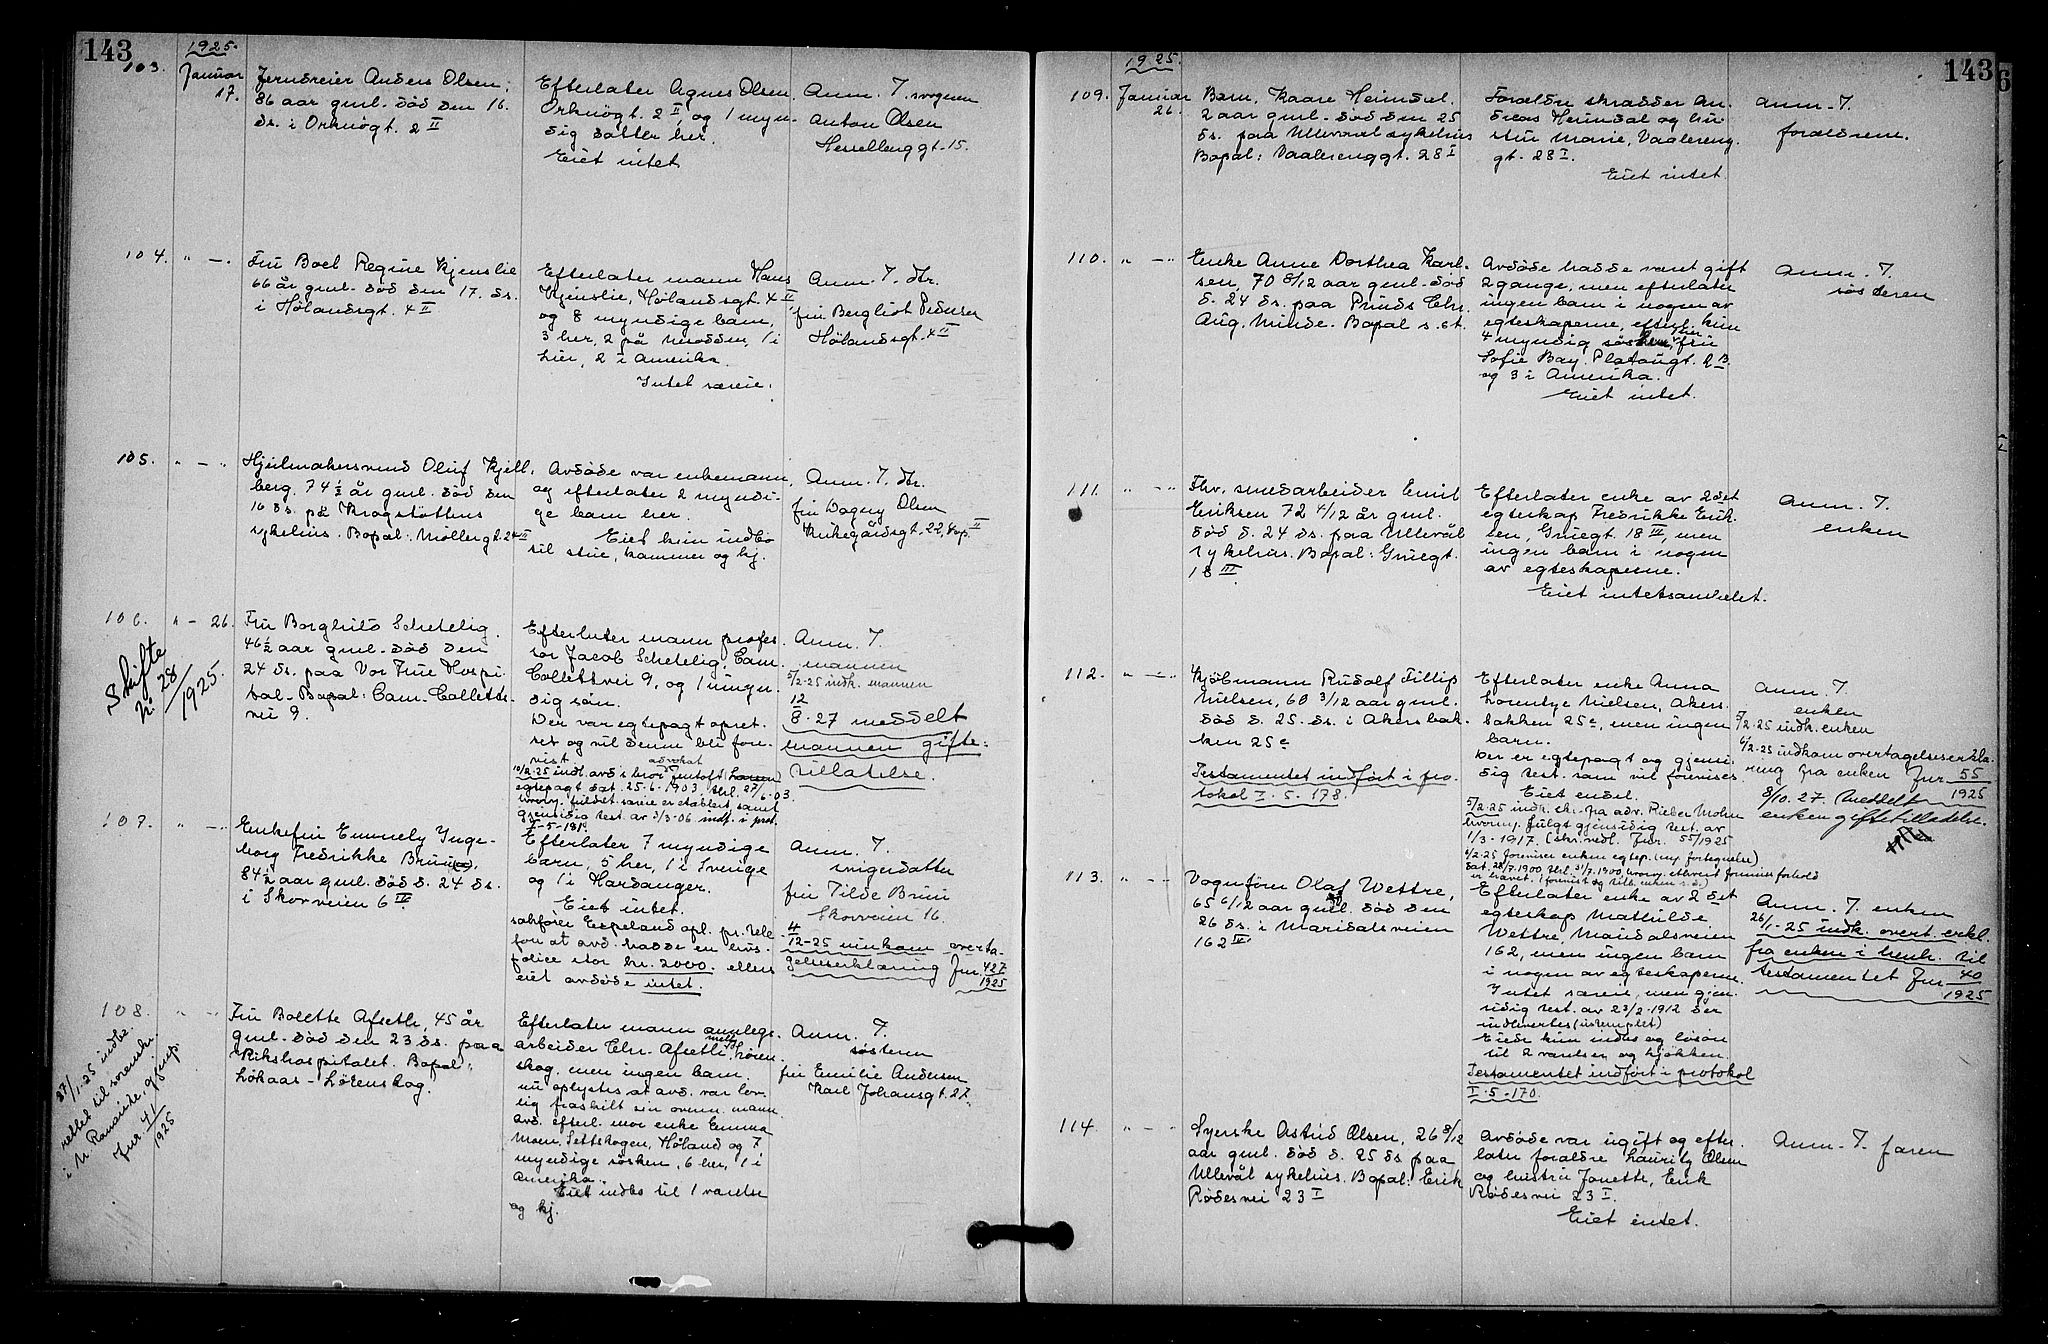 143
1925.
103.
Januar
17.
Jerndreier Anders Olsen,
86 aar gml. død den 16.
ds. i Orknøgt. 2 II
Efterlater Agnes Olsen
Orknøgt. 2 II, og 1 myn-
dig datter her.
Eiet intet
Anm. T. svogeren
Anton Olsen
Hesselberggt. 15.
104.
" — .
Fru Boel Regine Kjenslie
66 år gml. død den 17. ds.
i Hølandsgt. 4 II
Efterlater mann Hans
Kjenslie, Hølandsgt. 4 II,
og 8 myndige barn,
3 her, 2 på Modden, 1 i
hier, 2 i Amerika.
Intet særeie.
Anm. T. dtr.
fru Bergliot Pedersen
Hølandsgt. 4 II
105.
" — "
Hjulmakersvend Oluf Kjell-
berg. 74 ½ år gml. død den
16 ds. på Krogstøttens
sykehus. Bopal: Møllergt. 24 II
Avdøde var enkemann,
og efterlater 2 myndi-
ge barn her.
Eiet kun indbo
til stue, kammer og kj.
Anm. T. dtr.
fru Dagny Olsen
Kirkegårdsgt. 22, 4 op. II
106.
" — 26.
Skifte
N. 28/1925.
Fru Borghild Schetelig.
46 ½ aar gml. død den
24 ds. paa Vor Frue Hospi-
tal. Bopal: Cam. Colletts-
vei 9.
Efterlater mann profes-
sor Jacob Schetelig, Cam.
Collettsvei 9, og 1 umyn-
dig søn.
Der var egtepagt opret-
tet og vil denne bli fore-
vist.
advokat
10/2-25 indl. avd i brev Jentoft (Larsen)
egtepagt dat. 25-6-1903, thl. 27/6-03.
hvorv. fuldst. særeie er etablert, samt
gjensidig test. av 3/3-06 indf. i prot.
I-5-181.
Anm. T.
mannen
5/2-25 indk. mannen
12/8-27 meddelt
mannen gifte-
tillatelse.
107.
" — "
Enkefru Emmely Inge-
borg Fredrikke Bruun,
84 ½ aar gml. død d. 24 ds.
i Skovveien 6 IV
Efterlater 7 myndige
barn, 5 her, 1 i Sverige
og 1 i Hardanger.
Eiet intet.
sakfører Espeland opl. pr. tele-
fon at avd. hadde en livs-
police stor kr. 2000. ellers
eiet avdøde intet.
Anm. T.
svigerdatter
fru Tilde Bruun
Skovveien 16.
4/12-25 innkom overta-
gelseserklæring Jnr. 427/1925
108.
" — "
27/1-25 indbe-
rettet til sorenskr.
i N. Romerike, gjenp.
Jnr. 41/1925
Fru Bolette Afseth, 45 år
gml. død den 23 ds. paa
Rikshospitalet. Bopal:
Løkaas - Lørenskog.
Efterlater mann anlegs-
arbeider Chr. Afseth, Løren-
skog, men ingen barn.
nu oplystes at avd. var lov-
lig fraskilt sin ovenn. mann.
avd. efterl. mor enke Emma
Moen, Setskogen, Høland og 7
myndige søsken, 6 her, 1 i
Amerika.
Eiet indbo til 1 værelse
og kj.
Anm. T.
søsteren
fru Emilie Andersen
Karl Johansgt. 27.
143
1925.
109.
Januar
26.
Barn, Kaare Heimdal.
2 aar gml. død den 25
ds. paa Ullevaal sykehus
Bopal: Vaalerenggt. 28 I
Forældre skrædder An-
dreas Heimdal og hu-
stru Marie, Vaalereng-
gt. 28 I.
Eiet intet.
Anm. T.
forældrene.
110.
" — "
Enke Anne Dorthea Karl-
sen, 70 8/12 aar gml. død
d. 24 ds. paa Prinds Chr.
Aug. Minde. Bopal s. st.
Avdøde hadde været gift
2 gange, men efterlater
ingen barn i nogen av
egteskaperne, efterl. kun
4 myndig søsken, fru
Sofie Bay, Platougt. 2 B.
og 3 i Amerika.
Eiet intet.
Anm. T.
søsteren
111.
" — "
Fhv. smedarbeider Emil
Eriksen 72 4/12 år gml.
død d. 24 ds. paa Ullevål
sykehus. Bopal: Griegt.
18 III.
Efterlater enke av 2det
egteskap Fredrikke Erik-
sen, Griegt. 18 III, men
ingen barn i nogen
av egteskaperne.
Eiet intetsomhelst.
Anm. T.
enken
112.
" — "
Kjøbmann Rudolf Fillip
Nielsen, 60 3/12 aar gml.
død d. 25. ds. i Akersbak-
ken 25 c
Testamentet indført i pro-
tokol I. 5. 178.
Efterlater enke Anna
Lorentze Nielsen, Akers-
bakken 25 c, men ingen
barn.
Der er egtepagt og gjensi-
dig test. som vil forevises
Eiet endel.
5/2-25 indk. skr. fra adv. Rieber Mohn
hvorv. fulgt gjensidig test. av
1/3-1917. (skr. vedl. Jnr. 55/1925
6/2-25 foreviser enken egtep. (m. fortegnelse)
dat. 28/7-1900, thl. 31/7-1900, hvorv. ethvert formuesforhold
er hævet.
Anm. T.
enken
5/2-25 indk. enken
6/2-25 indkom overtagelseserklæ-
ring fra enken Jnr 55/1925
8/10. 27. Meddelt
enken giftetilladelse.
113.
" — "
Vognfører Olaf Wettre,
65 6/12 aar gml. død den
26 ds. i Maridalsveien
162 III
Efterlater enke av 2 det
egteskap Mathilde
Wettre, Maridalsveien
162, men ingen barn
i nogen av egteskaperne.
Intet særeie, men gjen-
sidig test. av 23/2-1912 der
indleveres (
Eiede kun indbo og løsøre
til 2 værelser og kjøkken.
Testamentet indført i protokol
I. 5-170.
Anm. T. enken
26/1-25 indk. overt. erkl.
fra enken i henh. til
testamentet Jnr 40/1925
114.
" — "
Syerske Astrid Olsen, 26 8/12
aar gml. død d. 25 ds paa
Ullevål sykehus. Bopal: Erik
Rødesvei 23 I
Avdøde var ugift og efter-
later forældre Lauritz Olsen
og hustru Janette, Erik
Rødesvei 23 I.
Eiet intet.
Anm. T. faren